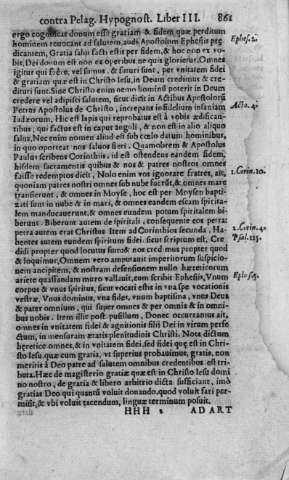 contra Pelag. Hypognost. Liber III. 861
ergo cognoscat donum esse gratiam & fidem quæ perditum
hominem reuocant ad salutem, audi Apostolum Ephesiis præ
dicantem, Gratia salui facti estis per fidem, & hoc non ex vo
bis, Dei donum est non ex operibus ne quis glorietur. Omnes
igitur qui fide, vel salui sunt, per vnitatem fidei
& gratiam quæ est in Christo Iesu, in Deum credunt & cre
dituri sunt. Sine Christo enim nemo poterit in Deum
credere vel adipisci salutem, sicut dicit in Actibus Apostolorũ
Petrus Apostolus de Christo, increpans infidelium insaniam
Iudæorum, Hic est lapis qui reprobatus est à vobis ædifican-
tibus, qui factus est in caput anguli, & non est in alio aliquo
salus, Nec enim nomen aliud est sub cœlo datum hominibus,
in quo oporteat nos saluos fieri. Quamobrem & Apostolus
Paulus scribens Corinthiis, vt ostendens eandem fidem,
hisdem sacramentis quibus & nos & patres nostros omnes
fuisse redemptos dicit, Nolo enim vos ignorare fratres, ait,
quoniam patres nostri omnes sub nube & omnes mare
transierunt, & omnes in Moyse, hoc est per Moysen bapti-
zati sunt in nube & in mari, & omnes eandem escam spirita-
lem manducauerunt, & omnes eundem potum spiritalem bi-
berunt. Bibebant autem de spiritali, consequente eos petra:
petra autem erat Christus. Item ad Corinthios secunda, Ha-
bentes autem eundem spiritum fidei, sicut scriptum est, Cre-
didi propter quod locutus sum & nos credimus propter quod
& loquimur, Omnem vero amputant imperitorum suspicio-
nem ancipitem, & nostram defensionem nullo hæreticorum
ariete quassandam muro vallant, cum scribit Ephesiis, Vnum
corpus & vnus spiritus, sicut vocati estis in vna spe vocationis
vestræ. Vnus dominus, vna fides, vnum baptisma, vnus Deus
& pater omnium, qui super omnes & per omnia & in omni-
bus nobis. Item ille post pusillum, Donec occuramus ait,
omnes in vnitatem fidei & agnitionis filii Dei in virum perfe
ctum, in mensuram ætatis plenitudinis Christi. Nota dictum
hæretice omnes, & in vnitatem fidei, sed fidei quæ est in Chri-
sto Iesu, quæ cum gratia, vt superius probauimus, gratis, non
meritis à Deo patre ad salutem omnibus credentibus est tri
buta. Hæc de magisterio gratiæ quæ est in Christo Iesu domi
no nostro, de gratia & libero arbitrio dicta sufficiant, imò
gratias Deo qui quantũ voluit donando, quod voluit fari per-
misit, & vbi voluit tacendum, linguæ terminum posuit.
HHH 2 AD ART
Ephes. 2.
Acto. 4.
1. Corin. 10.
2. Corin. 4.
Psal. 115.
Ephes. 4.